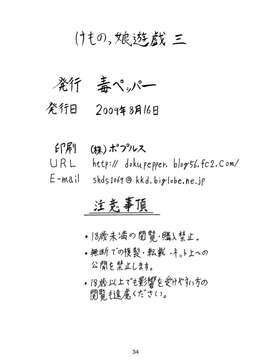 けもの、娘遊戯 三
発行 毒ペッパー
発行日 2009年8月16日
印刷 (株)ポプルス
URL http://dokupepper.blog56.fc2.com/
E-mail shds1069@kkd.biglobe.ne.jp
注意事項
・18歳未満の閲覧・購入禁止。
・無断での複製・転載・ネット上への
公開を禁止します。
・18歳以上でも影響を受けやすい方の
閲覧も遠慮ください。
34